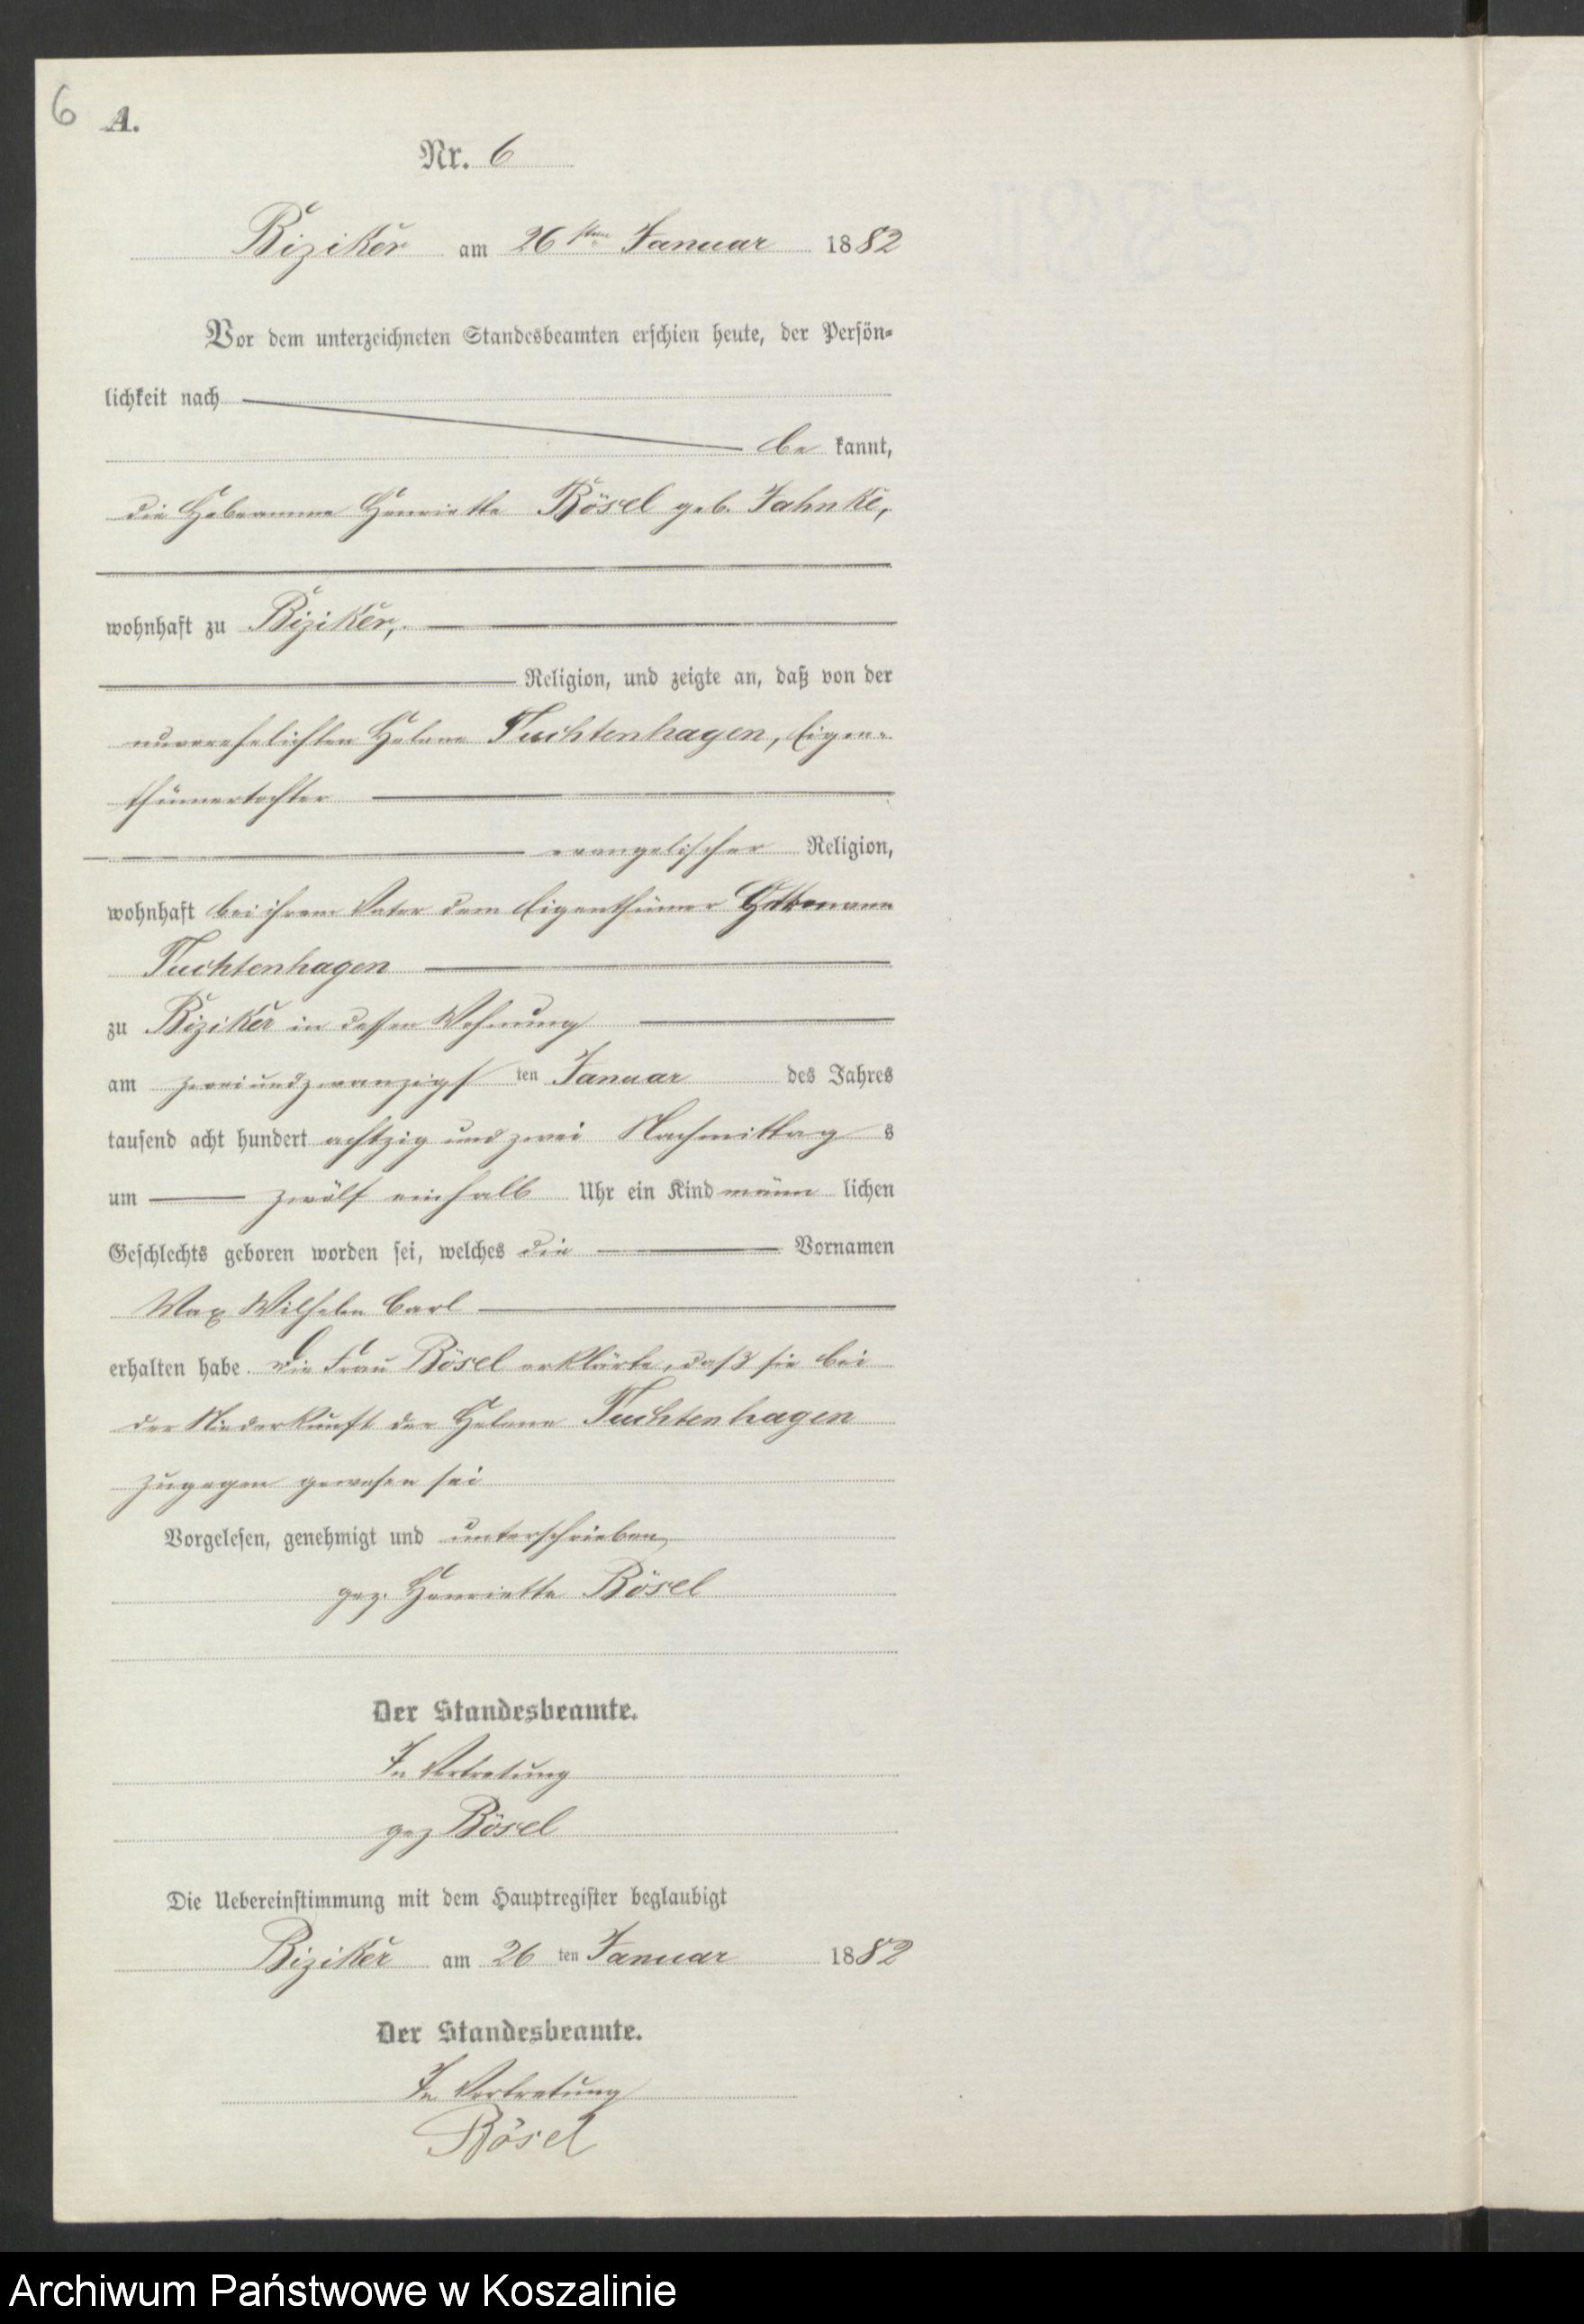 6 A.
Nr. 6
Biziker am 26sten Januar 1882
Vor dem unterzeichneten Standesbeamten erschien heute, der Persön-
lichkeit nach
be kannt,
die Hebeamme Henriette Bösel geb. Jahnke,
wohnhaft zu Biziker,
Religion, und zeigte an, daß von der
unverehelichten Helene Tuchtenhagen, Eigen-
thümertochter
evangelischer Religion,
wohnhaft bei ihrem Vater dem Eigenthümer
Tuchtenhagen
zu Biziker in dessen Wohnung
am zweiundzwanzigsten Januar des Jahres
tausend acht hundert achtzig und zwei Nachmittags
um zwölf einhalb Uhr ein Kind männlichen
Geschlechts geboren worden sei, welches die Vornamen
Max Wilhelm Carl
erhalten habe. Die Frau Bösel erklärte, daß sie bei
der Niederkunft der Helene Tuchtenhagen
zugegen gewesen sei
Vorgelesen, genehmigt und unterschrieben
gez. Henriette Bösel
Der Standesbeamte.
In Vertretung
gez Bösel
Die Uebereinstimmung mit dem Hauptregister beglaubigt
Biziker am 26ten Januar 1882
Der Standesbeamte.
In Vertretung
Bösel
Archiwum Państwowe w Koszalinie